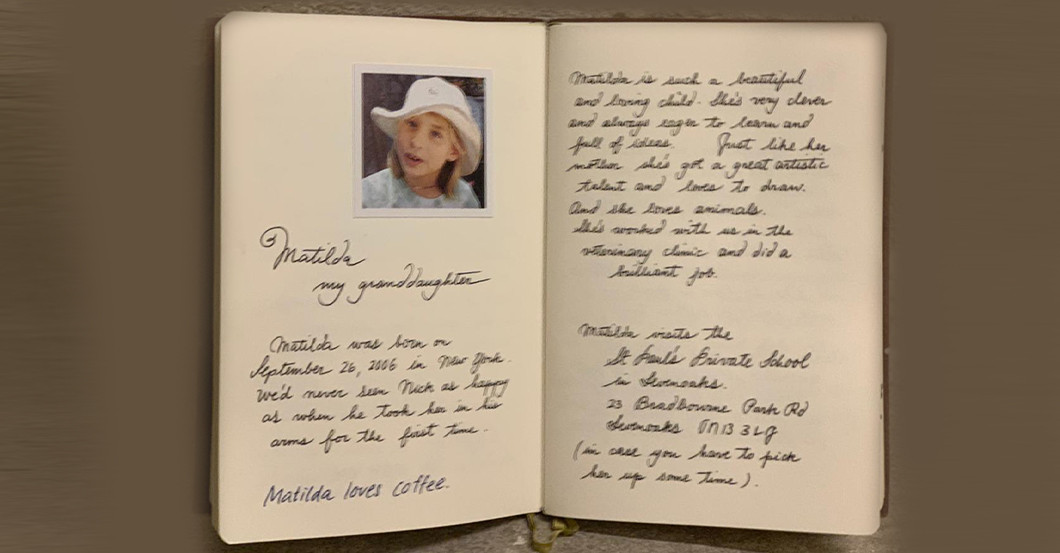 Matilda
my granddaughter
Matilda was born on
September 26, 2006 in New York.
We'd never seen Nick as happy
as when he took her in his
arms for the first time.
Matilda loves coffee.
Matilda is such a beautiful
and loving child. She's very clever
and always eager to learn and
full of ideas. Just like her
mother she's got a great artistic
talent and loves to draw.
And she loves animals.
She's worked with us in the
veterinary clinic and did a
brilliant job.
Matilda visits the
St Paul's Private School
in Sevenoaks.
23 Bradbourne Park Rd
Sevenoaks TN13 3LG
(in case you have to pick
her up some time).